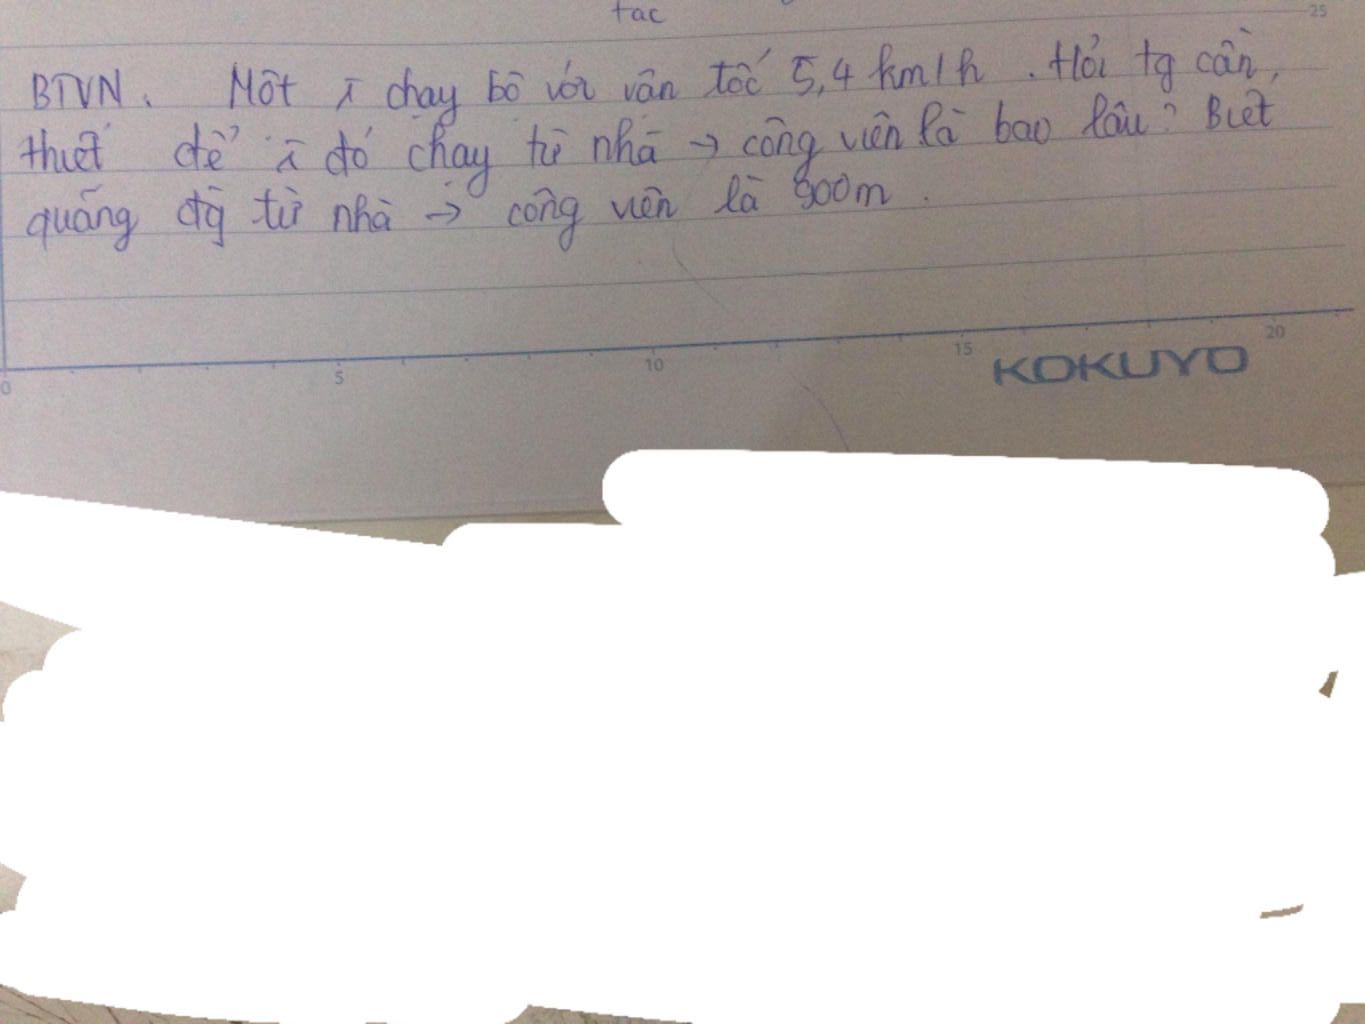 tac
25
BTVN. Một ī chạy bộ với vận tốc 5,4 km/h. Hỏi tg cần,
thiết để ī đó chạy từ nhà → công viên là bao lâu? Biết
quãng đg từ nhà → công viên là 900m.
0 5 10 15 20
KOKUYO